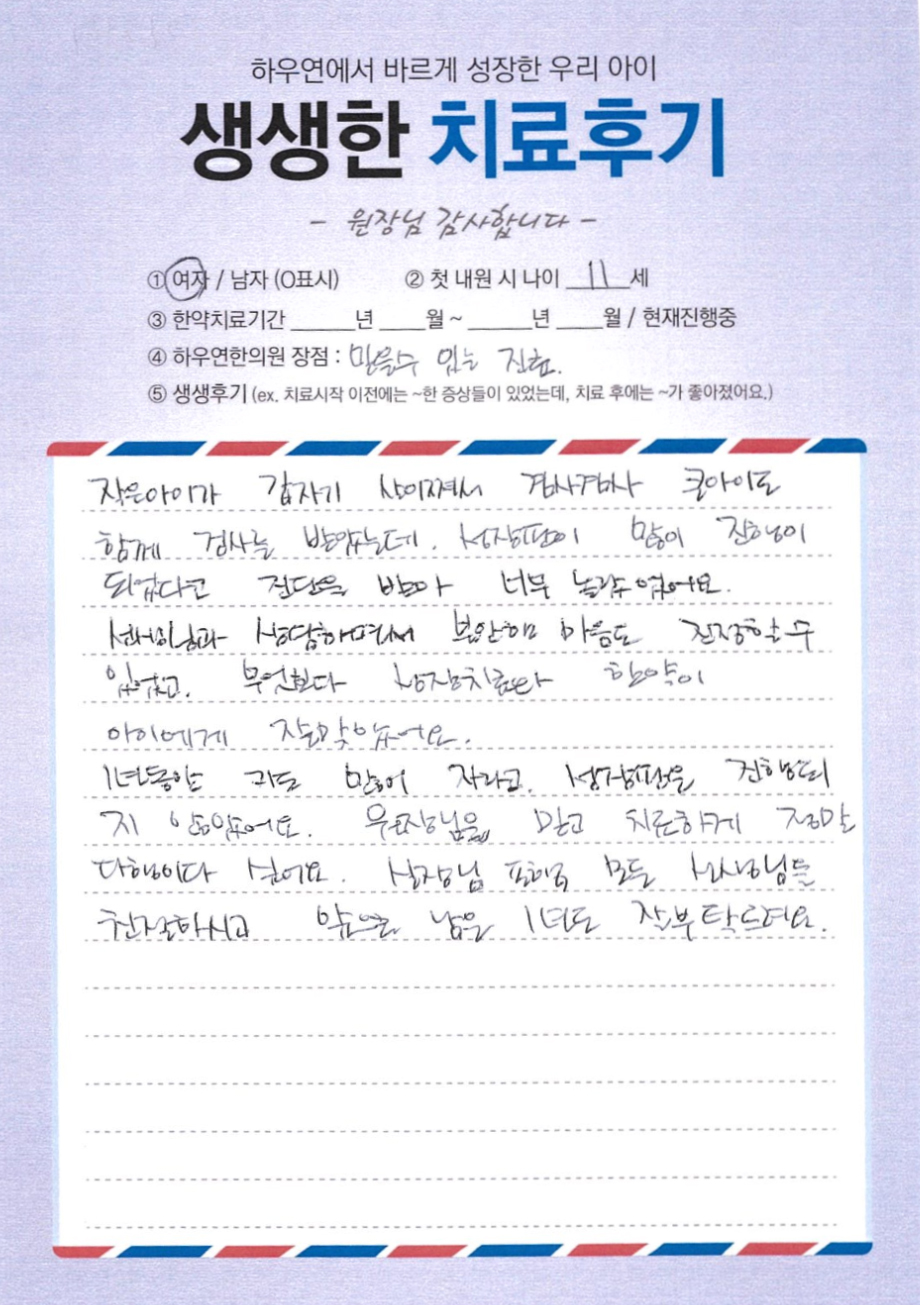 하우연에서 바르게 성장한 우리 아이
생생한 치료후기
- 원장님 감사합니다 -
① 여자 / 남자 (O표시) ② 첫 내원 시 나이 11 세
③ 한약치료기간 ______년 ____월 ~ ______년 ____월 / 현재진행중
④ 하우연한의원 장점 : 믿을수 있는 진료.
⑤ 생생후기 (ex. 치료시작 이전에는 ~한 증상들이 있었는데, 치료 후에는 ~가 좋아졌어요.)
작은아이가 갑자기 살이쪄서 겸사겸사 큰아이도
함께 검사를 받았는데. 성장판이 많이 진행이
되었다고 진단을 받아 너무 놀랐었어요.
선생님과 상담하면서 불안한 마음도 진정할수
있었고. 무엇보다 성장치료와 한약이
아이에게 잘맞았어요.
1년동안 키도 많이 자라고. 성장판은 진행되
지 않았어요. 원장님을 믿고 치료한게 정말
다행이다 싶어요. 실장님 포함 모든 선생님들
친절하시고 앞으로 남은 1년도 잘부탁드려요.